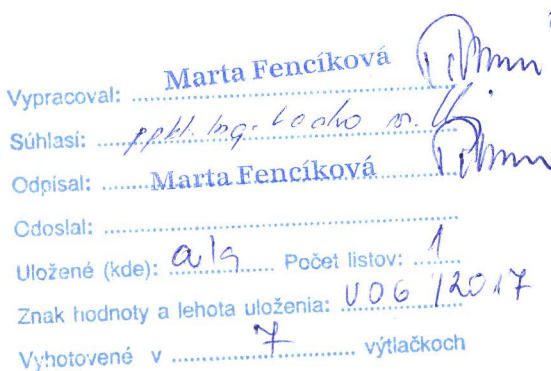 Vypracoval: Marta Fencíková
Súhlasí: pplk. Ing.
Odpísal: Marta Fencíková
Odoslal:
Uložené (kde): a/a Počet listov: 1
Znak hodnoty a lehota uloženia: V06 / 2017
Vyhotovené v 7 výtlačkoch